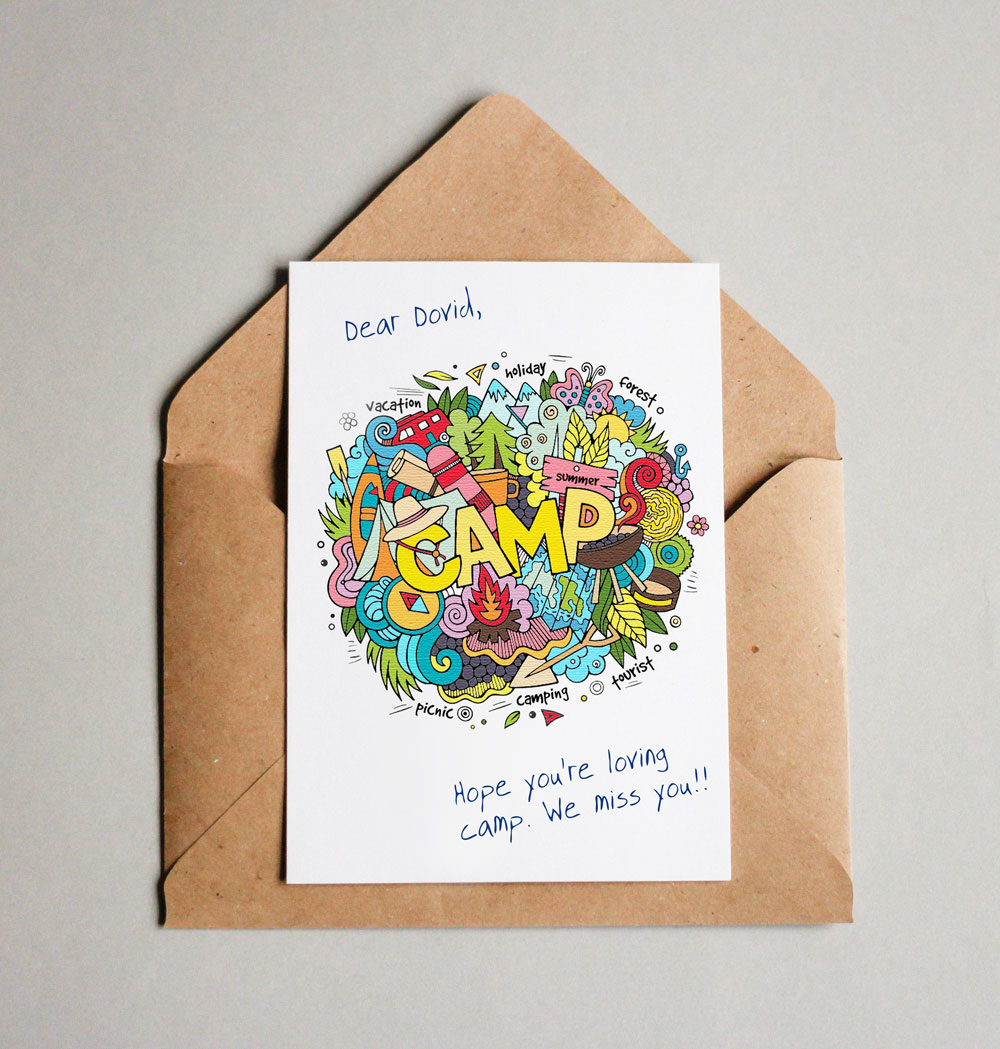 Dear Dovid,
holiday
forest
vacation
summer
CAMP
tourist
camping
picnic
Hope you're loving
camp. We miss you!!